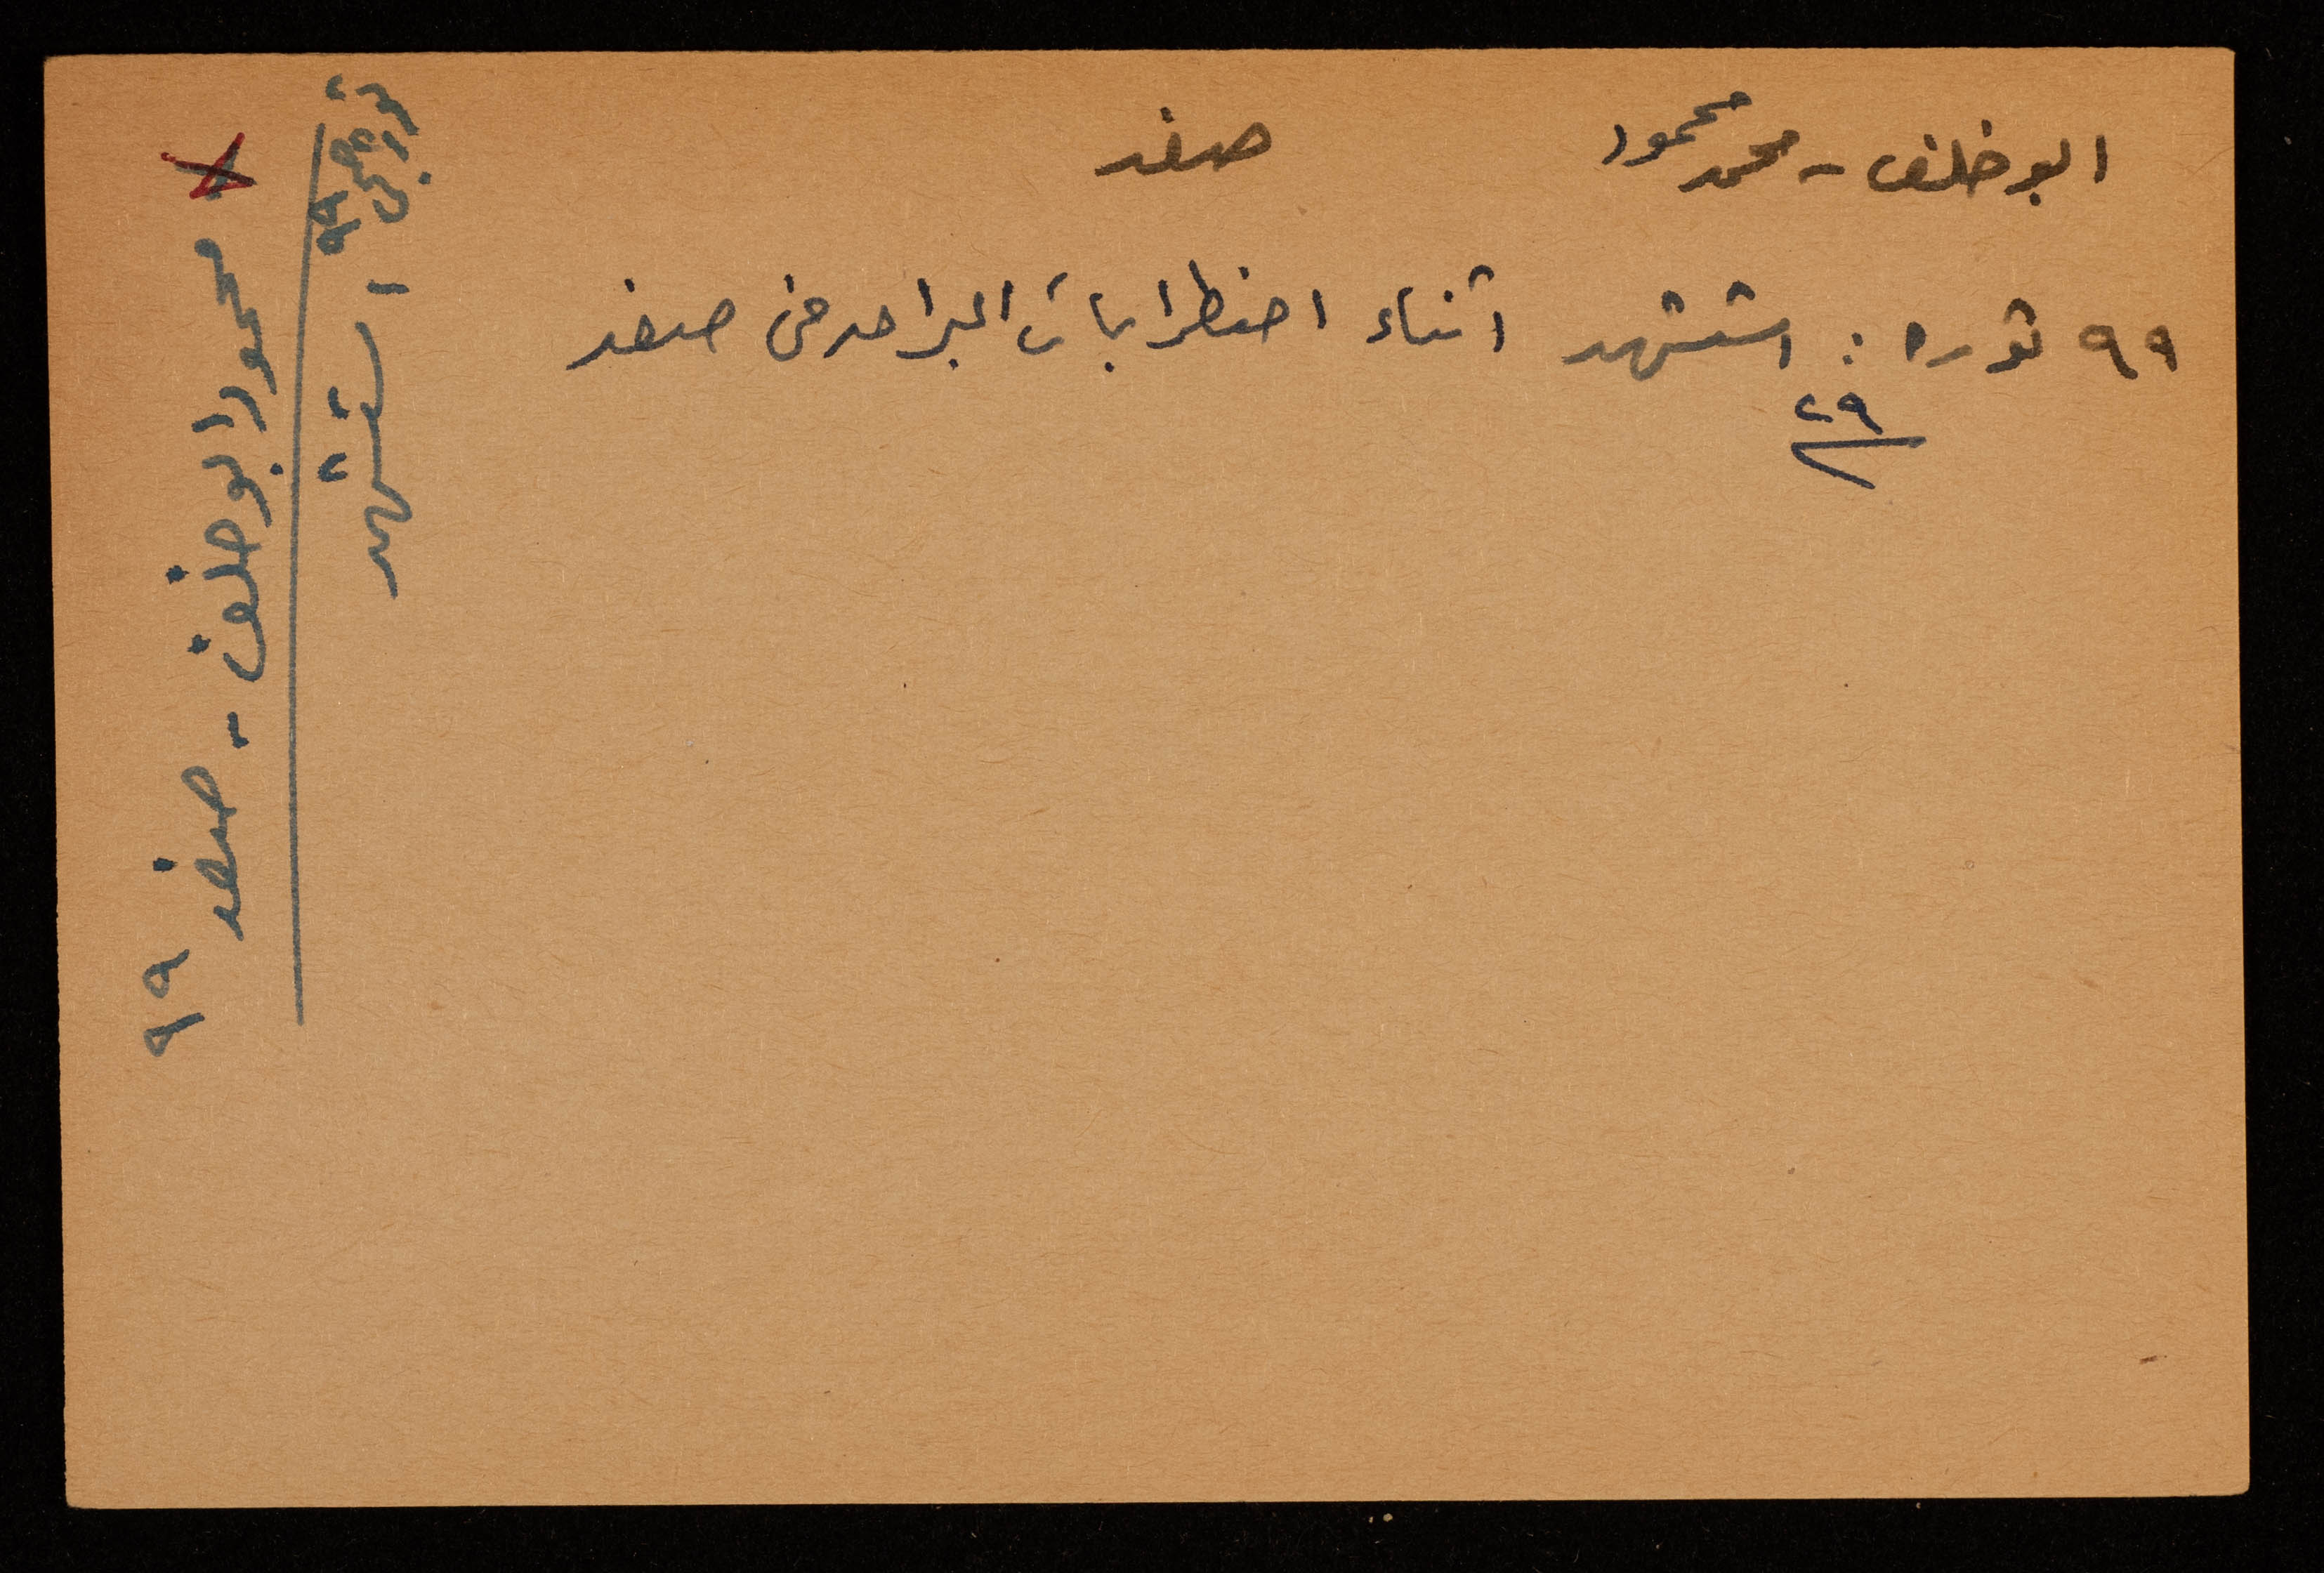 ابو خلف - محمد محمود صفد
٩٩ ثوره : استشهد اثناء اضطرابات البراق في صفد
٢٩
محمود ابو خلف - صفد ٩٩
٩٩ استشهد